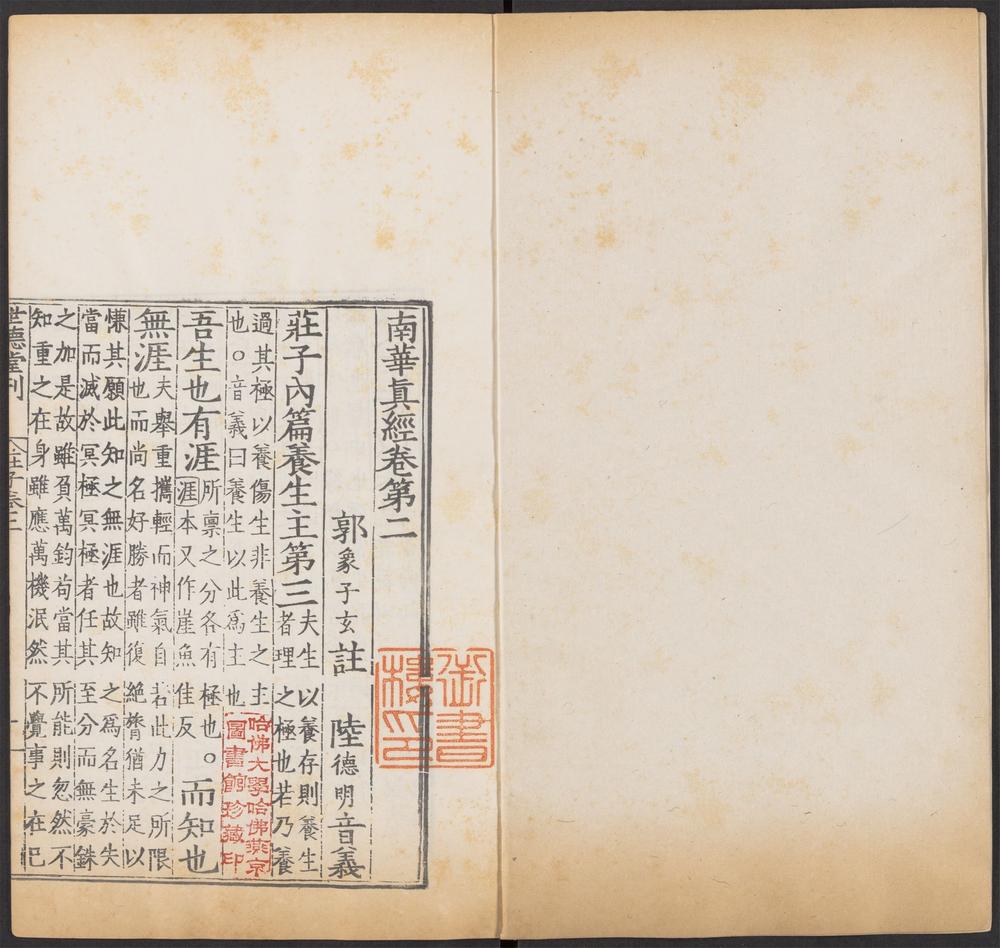 南華眞經卷第二
郭象子玄註　陸德明音義
莊子內篇養生主第三
夫生以養存則養生
者理之極也若乃養
過其極以養傷生非養生之主
也○音義曰養生以此爲主也
吾生也有涯
所稟之分各有極也○
涯本又作崖魚佳反
而知也
無涯
夫舉重攜輕而神氣自若此力之所限
也而尚名好勝者雖復絕膂猶未足以
慊其願此知之無涯也故知之爲名生於失
當而滅於冥極冥極者任其至分而無豪銖
之加是故雖負萬鈞苟當其所能則忽然不
知重之在身雖應萬機泯然不覺事之在已
世德堂刊
莊子卷二
御書樓印
哈佛大學哈佛燕京
圖書館珍藏印